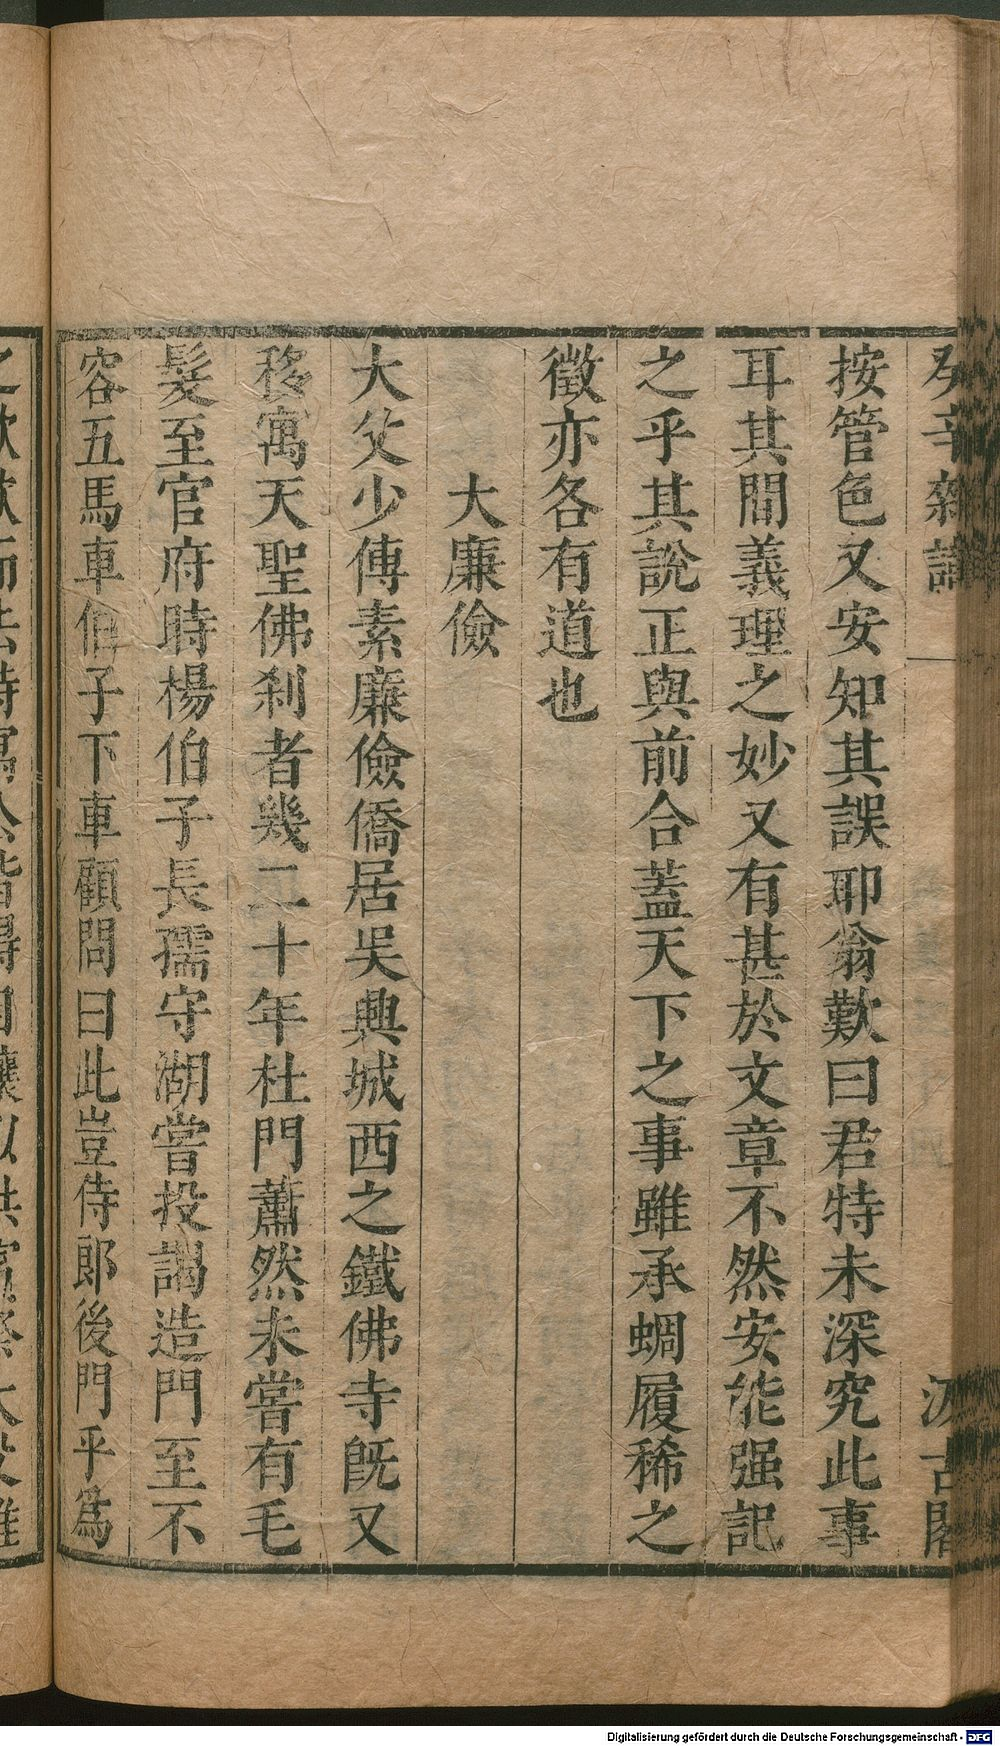 癸辛雜識
汲古閣
按管色又安知其誤耶翁歎曰君特未深究此事
耳其間義理之妙又有甚於文章不然安能强記
之乎其說正與前合蓋天下之事雖承蜩履稀之
微亦各有道也
大廉儉
大父少傳素廉儉僑居吳興城西之鐵佛寺旣又
移寓天聖佛刹者幾二十年杜門蕭然未嘗有毛
髮至官府時楊伯子長孺守湖嘗投謁造門至不
容五馬車伯子下車顧問曰此豈侍郎後門乎爲
Digitalisierung gefördert durch die Deutsche Forschungsgemeinschaft - DFG